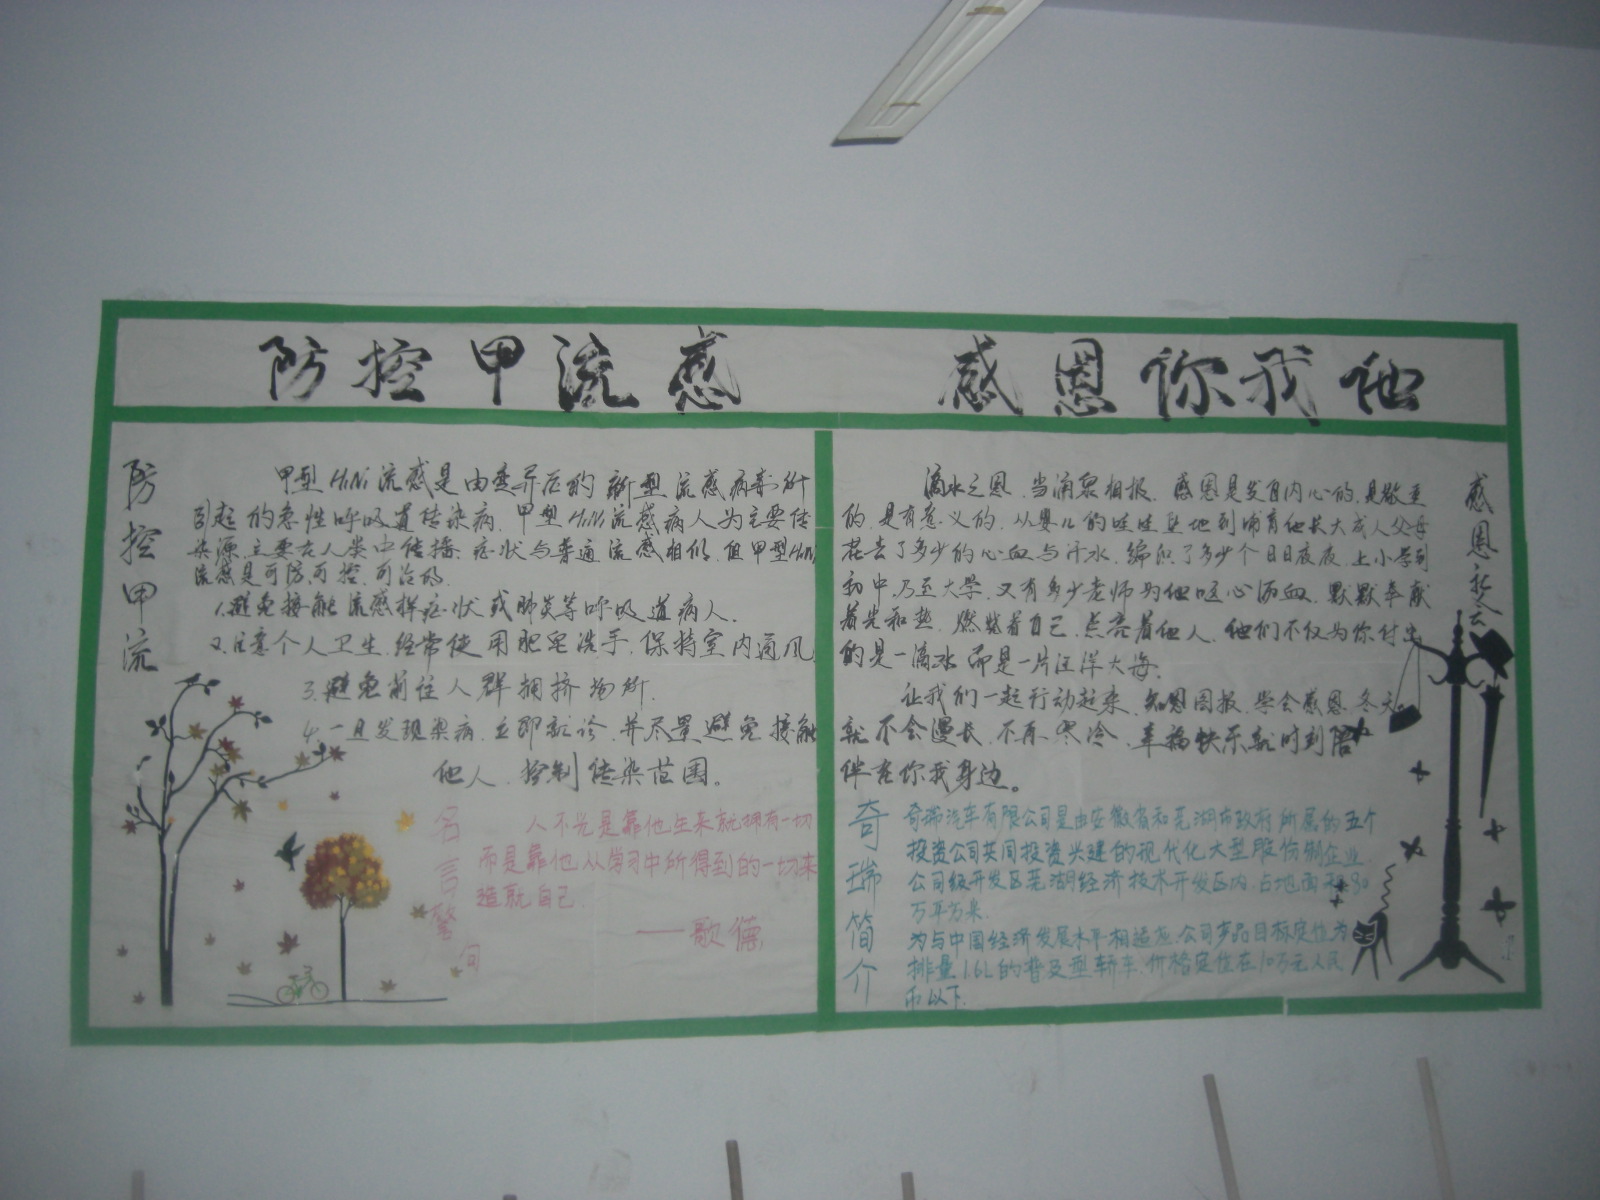 防控甲流感
感恩你我他
防控甲流
甲型H1N1流感是由变异后的新型流感病毒所
引起的急性呼吸道传染病.甲型H1N1流感病人为主要传
染源,主要在人类中传播.症状与普通流感相似,但甲型H1N1
流感是可防,可控,可治的.
1.避免接触流感样症状或肺炎等呼吸道病人.
2.注意个人卫生,经常使用肥皂洗手,保持室内通风
3.避免前往人群拥挤场所.
4.一旦发现染病,立即就诊,并尽量避免接触
他人,控制传染范围。
名言警句
人不光是靠他生来就拥有一切
而是靠他从学习中所得到的一切来
造就自己.
——歌德
感恩社会
滴水之恩,当涌泉相报.感恩是发自内心的,是敬重
的,是有意义的,从婴儿的哇哇坠地到哺育他长大成人父母
花去了多少的心血与汗水,编织了多少个日日夜夜,上小学到
初中,乃至大学,又有多少老师为他呕心沥血,默默奉献
着光和热,燃烧着自己,点亮着他人,他们不仅为你付出
的是一滴水,而是一片汪洋大海.
让我们一起行动起来,知恩图报,学会感恩,冬天
就不会漫长,不再寒冷,幸福快乐就时刻陪
伴在你我身边。
奇瑞简介
奇瑞汽车有限公司是由安徽省和芜湖市政府所属的五个
投资公司共同投资兴建的现代化大型股份制企业.
公司级开发区芜湖经济技术开发区内,占地面积30
万平方米.
为与中国经济发展水平相适应,公司产品目标定位为
排量1.6L的普及型轿车,价格定位在10万元人民
币以下.